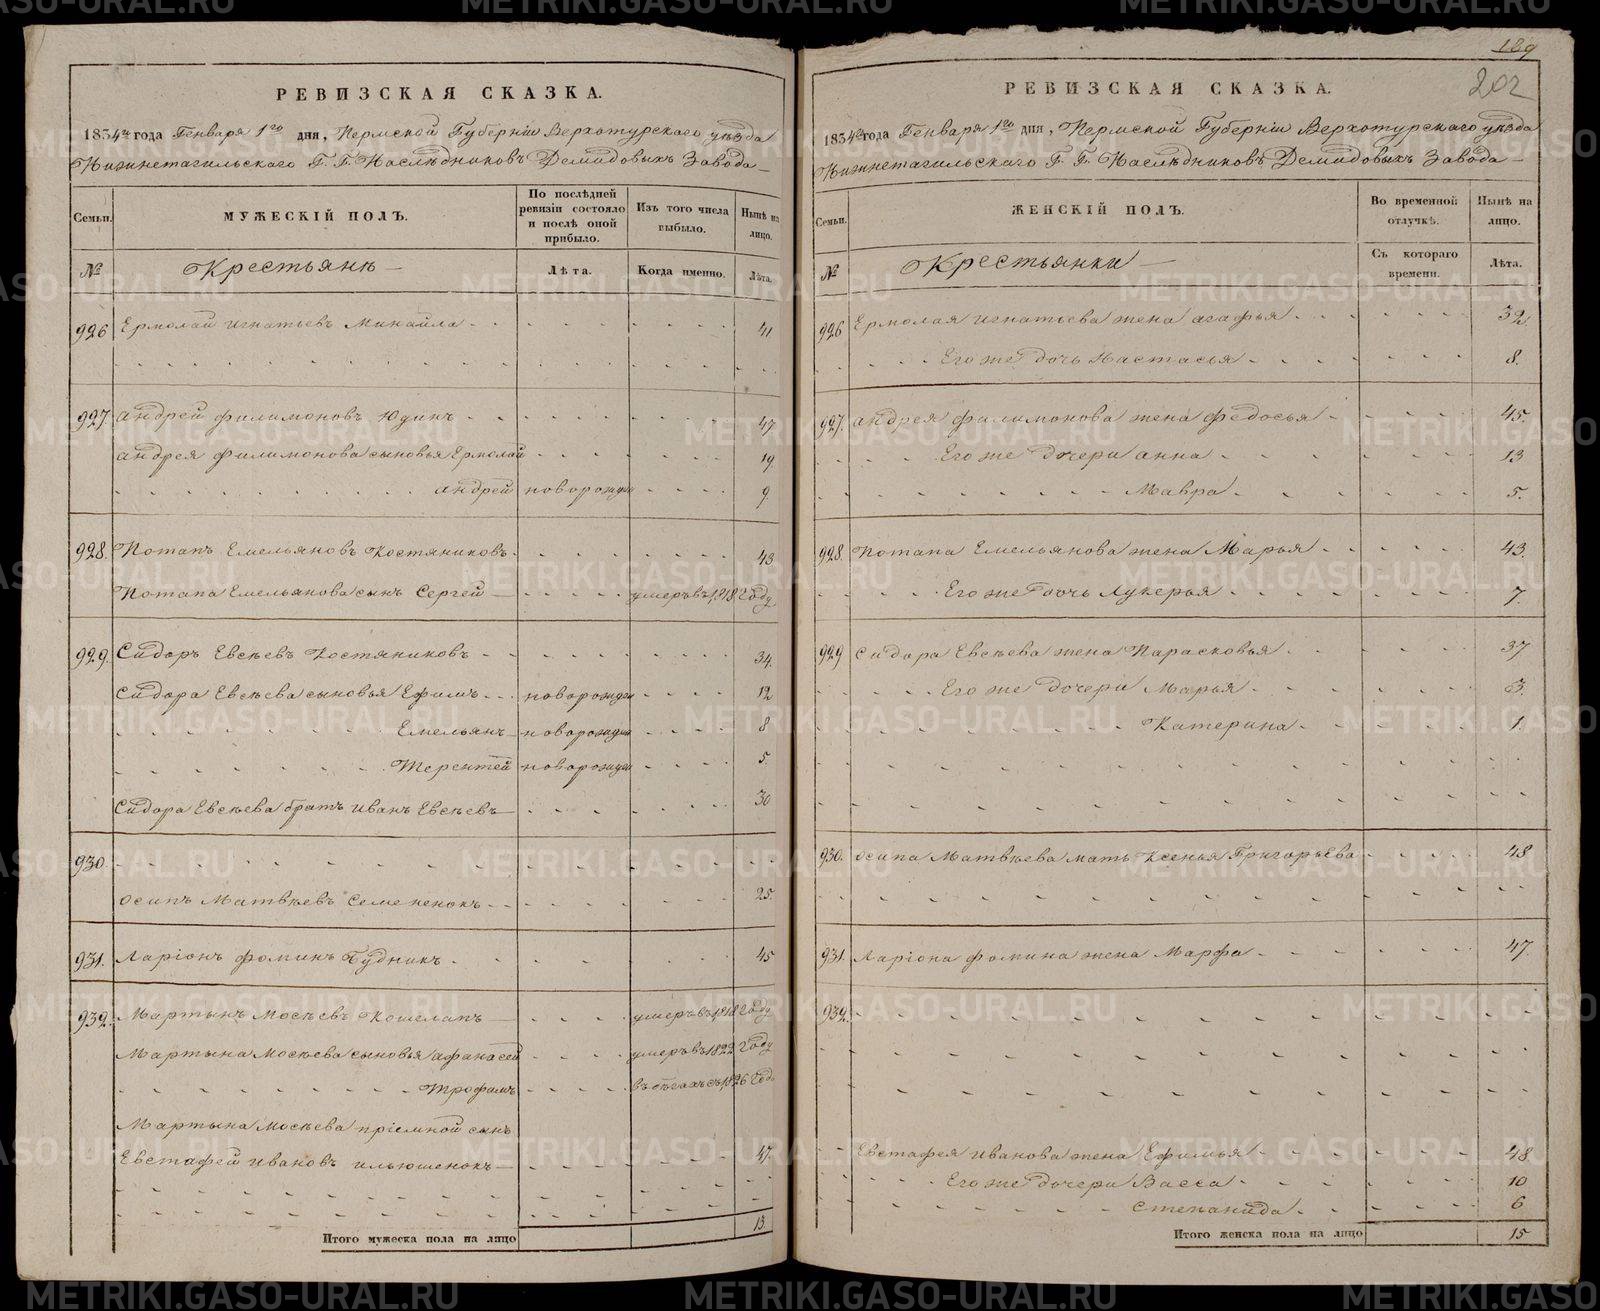 РЕВИЗСКАЯ СКАЗКА.
1834го года Генваря 1го дня, Пермской Губерніи Верхотурскаго уѣзда
Нижнетагильскаго Г. Г. Наслѣдниковъ Демидовыхъ Завода
Семьи. МУЖЕСКІЙ ПОЛЪ. По послѣдней ревизіи состояло и послѣ оной прибыло. Изъ того числа выбыло. Нынѣ на лицо.
№ Крестьянѣ Лѣта. Когда именно. Лѣта.
926 Ермолай Игнатьевъ Минайла 41
927. Андрей Филимоновъ Юдинъ 47
Андрея Филимонова сыновья Ермолай 19
Андрей новорожден 9
928. Потапъ Емельяновъ Костяниковъ 43
Потапа Емельянова сынъ Сергей умеръ въ 1818 Году
929. Сидоръ Евсѣевъ Костяниковъ 34.
Сидора Евсѣева сыновья Ефимъ новорожден 12
Емельянъ новорожден 8
Терентей новорожден 5.
Сидора Евсѣева братъ Иванъ Евсѣевъ 30
930.
Осипъ Матвѣевъ Семененокъ 25.
931. Ларіонъ Фоминъ Будникъ 45
932. Мартынъ Мосѣевъ Кошелапъ умеръ въ 1818 Году
Мартына Мосѣева сыновья Афанасей умеръ въ 1822 Году
Трофимъ въ бѣгахъ съ 1826 Года
Мартына Мосѣева пріемной сынъ
Евстафей Ивановъ Ильюшенокъ 47.
13.
Итого мужеска пола на лицо
189
202
РЕВИЗСКАЯ СКАЗКА.
1834го года Генваря 1го дня, Пермской Губерніи Верхотурскаго уѣзда
Нижнетагильскаго Г. Г. Наслѣдниковъ Демидовыхъ Завода
Семьи. ЖЕНСКІЙ ПОЛЪ. Во временной отлучкѣ. Нынѣ на лицо.
№ Крестьянки Съ котораго времени. Лѣта.
926 Ермолая Игнатьева жена Агафья 32
Его же дочь Настасья 8.
927. Андрея Филимонова жена Федосья 45.
Его же дочери Анна 13
Мавра 5.
928. Потапа Емельянова жена Марья 43.
Его же дочь Лукерья 7.
929 Сидора Евсѣева жена Парасковья 37
Его же дочери Марья 3.
Катерина 1.
930. Осипа Матвѣева мать Ксенья Григорьева 48
931. Ларіона Фомина жена Марфа 47.
932.
Евстафея Иванова жена Ефимья 48
Его же дочери Васса 10
Степанида 6
Итого женска пола на лицо 15
METRIKI.GASO-URAL.RU